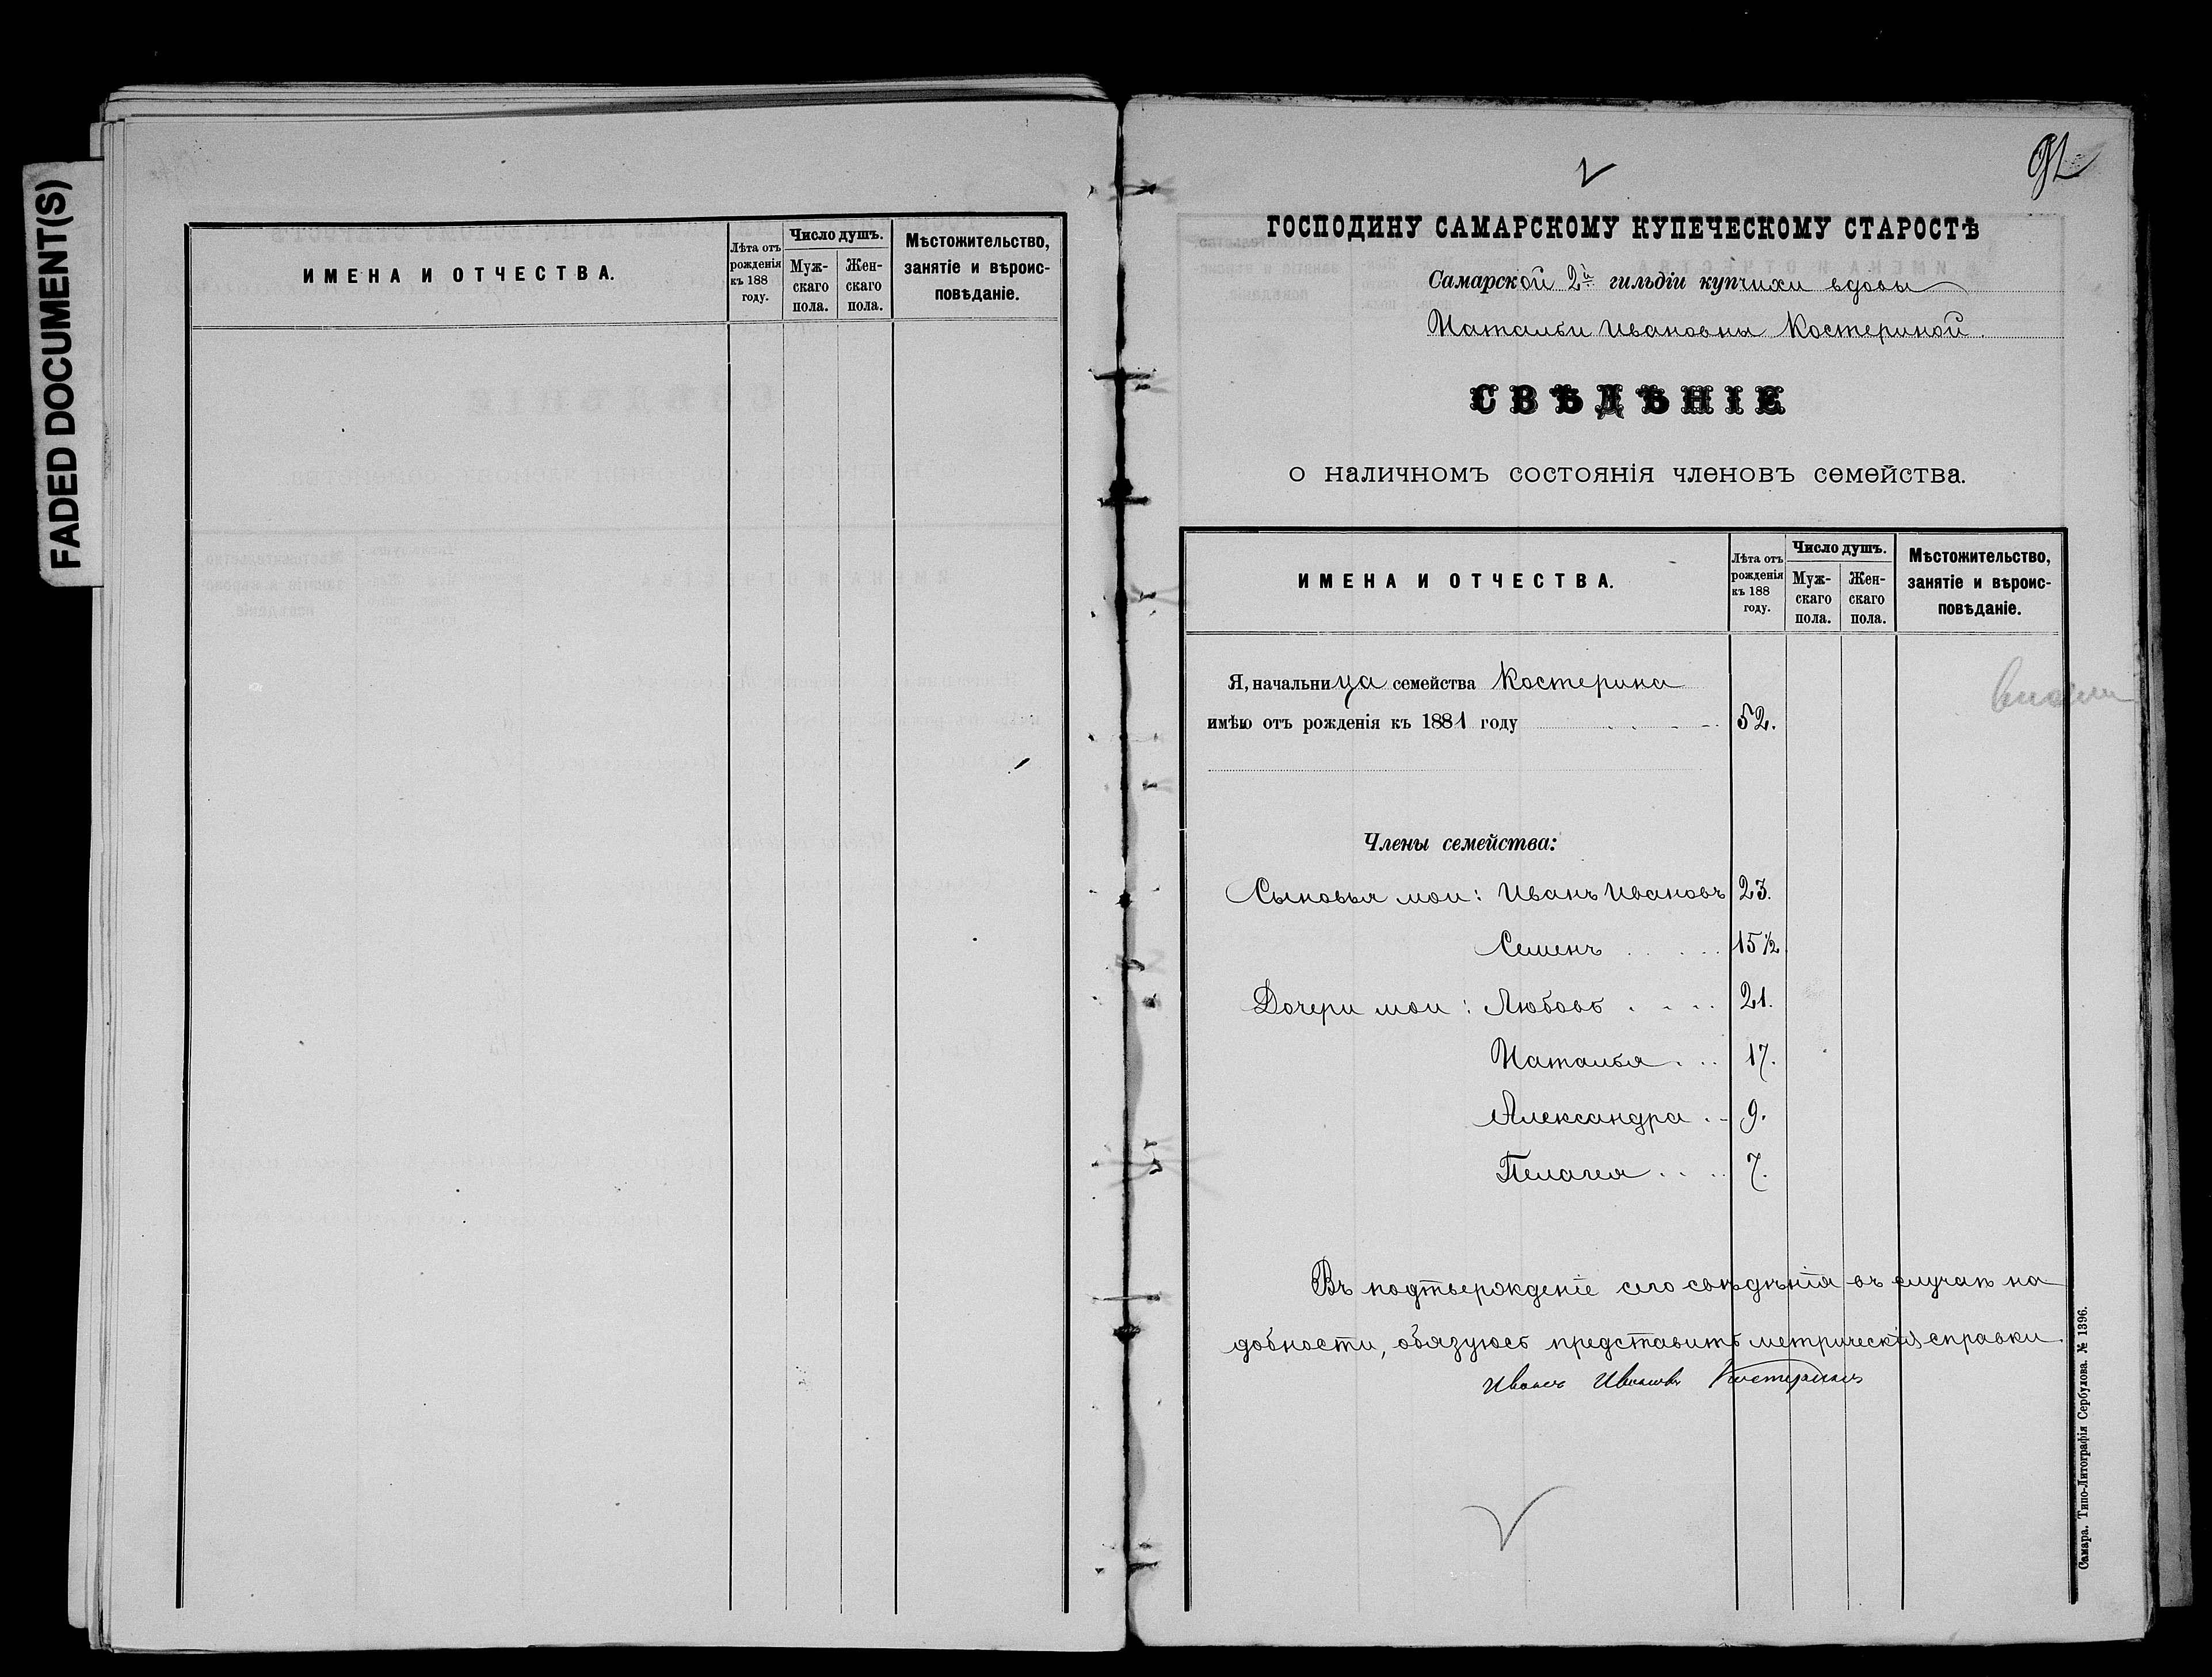 FADED DOCUMENT(S)
ИМЕНА И ОТЧЕСТВА.
Лѣта отъ рожденія къ 188 году.
Число душъ.
Мужскаго пола.
Женскаго пола.
Мѣстожительство, занятіе и вѣроисповѣданіе.
92
ГОСПОДИНУ САМАРСКОМУ КУПЕЧЕСКОМУ СТАРОСТѢ
Самарской 2й гильдіи купчихи вдовы
Натальи Ивановны Костериной.
СВѢДѢНІЕ
о наличномъ состоянія членовъ семейства.
ИМЕНА И ОТЧЕСТВА.
Лѣта отъ рожденія къ 188 году.
Число душъ.
Мужскаго пола.
Женскаго пола.
Мѣстожительство, занятіе и вѣроисповѣданіе.
Я, начальница семейства Костерина
имѣю отъ рожденія къ 1881 году 52.
Члены семейства:
Сыновья мои: Иванъ Ивановъ 23.
Семенъ 15½
Дочери мои: Любовь 21.
Наталья 17.
Александра 9.
Пелагея 7.
Въ подтвержденіе сего свѣдѣнія въ случаѣ на
добности, обязуюсь представить метрическія справки.
Иванъ Ивановъ Костеринъ
Самара. Типо-Литографія Сербулова. № 1396.